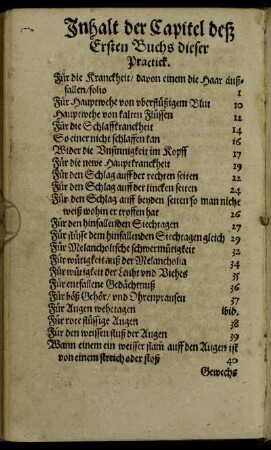 Inhalt der Capitel deß
Ersten Buchs dieser
Practick.
Für die Kranckheit/ davon einem die Haar auß-
fallen/folio 1
Für Hauptwehe von vberflüßigem Blut 10
Hauptwehe von kalten Flüssen 12
Für die Schlaffkranckheit 14
So einer nicht schlaffen kan 16
Wider die Vnsinnigkeit im Kopff 17
Für die newe Hauptkranckheit 19
Für den Schlag auff der rechten seiten 22
Für den Schlag auff der lincken seiten 24
Für den Schlag auff beyden seiten so man nicht
weiß wohin er troffen hat 26
Für den hinfallenden Siechtagen 27
Für füsse dem hinfallenden Siechtagen gleich 29
Für Melancholische schwermütigkeit 32
Für wütigkeit auß der Melancholia 34
Für wütigkeit der Leiht vnd Viehes 35
Für entfallene Gedächtnuß 36
Für böß Gehör/ vnd Ohrenprausen 37
Für Augen wehetagen ibid.
Für rote flüssige Augen 38
Für den weissen fluß der Augen 39
Wann einem ein weisser flam auff den Augen ist
von einem streich oder stoß 40
Gewechs